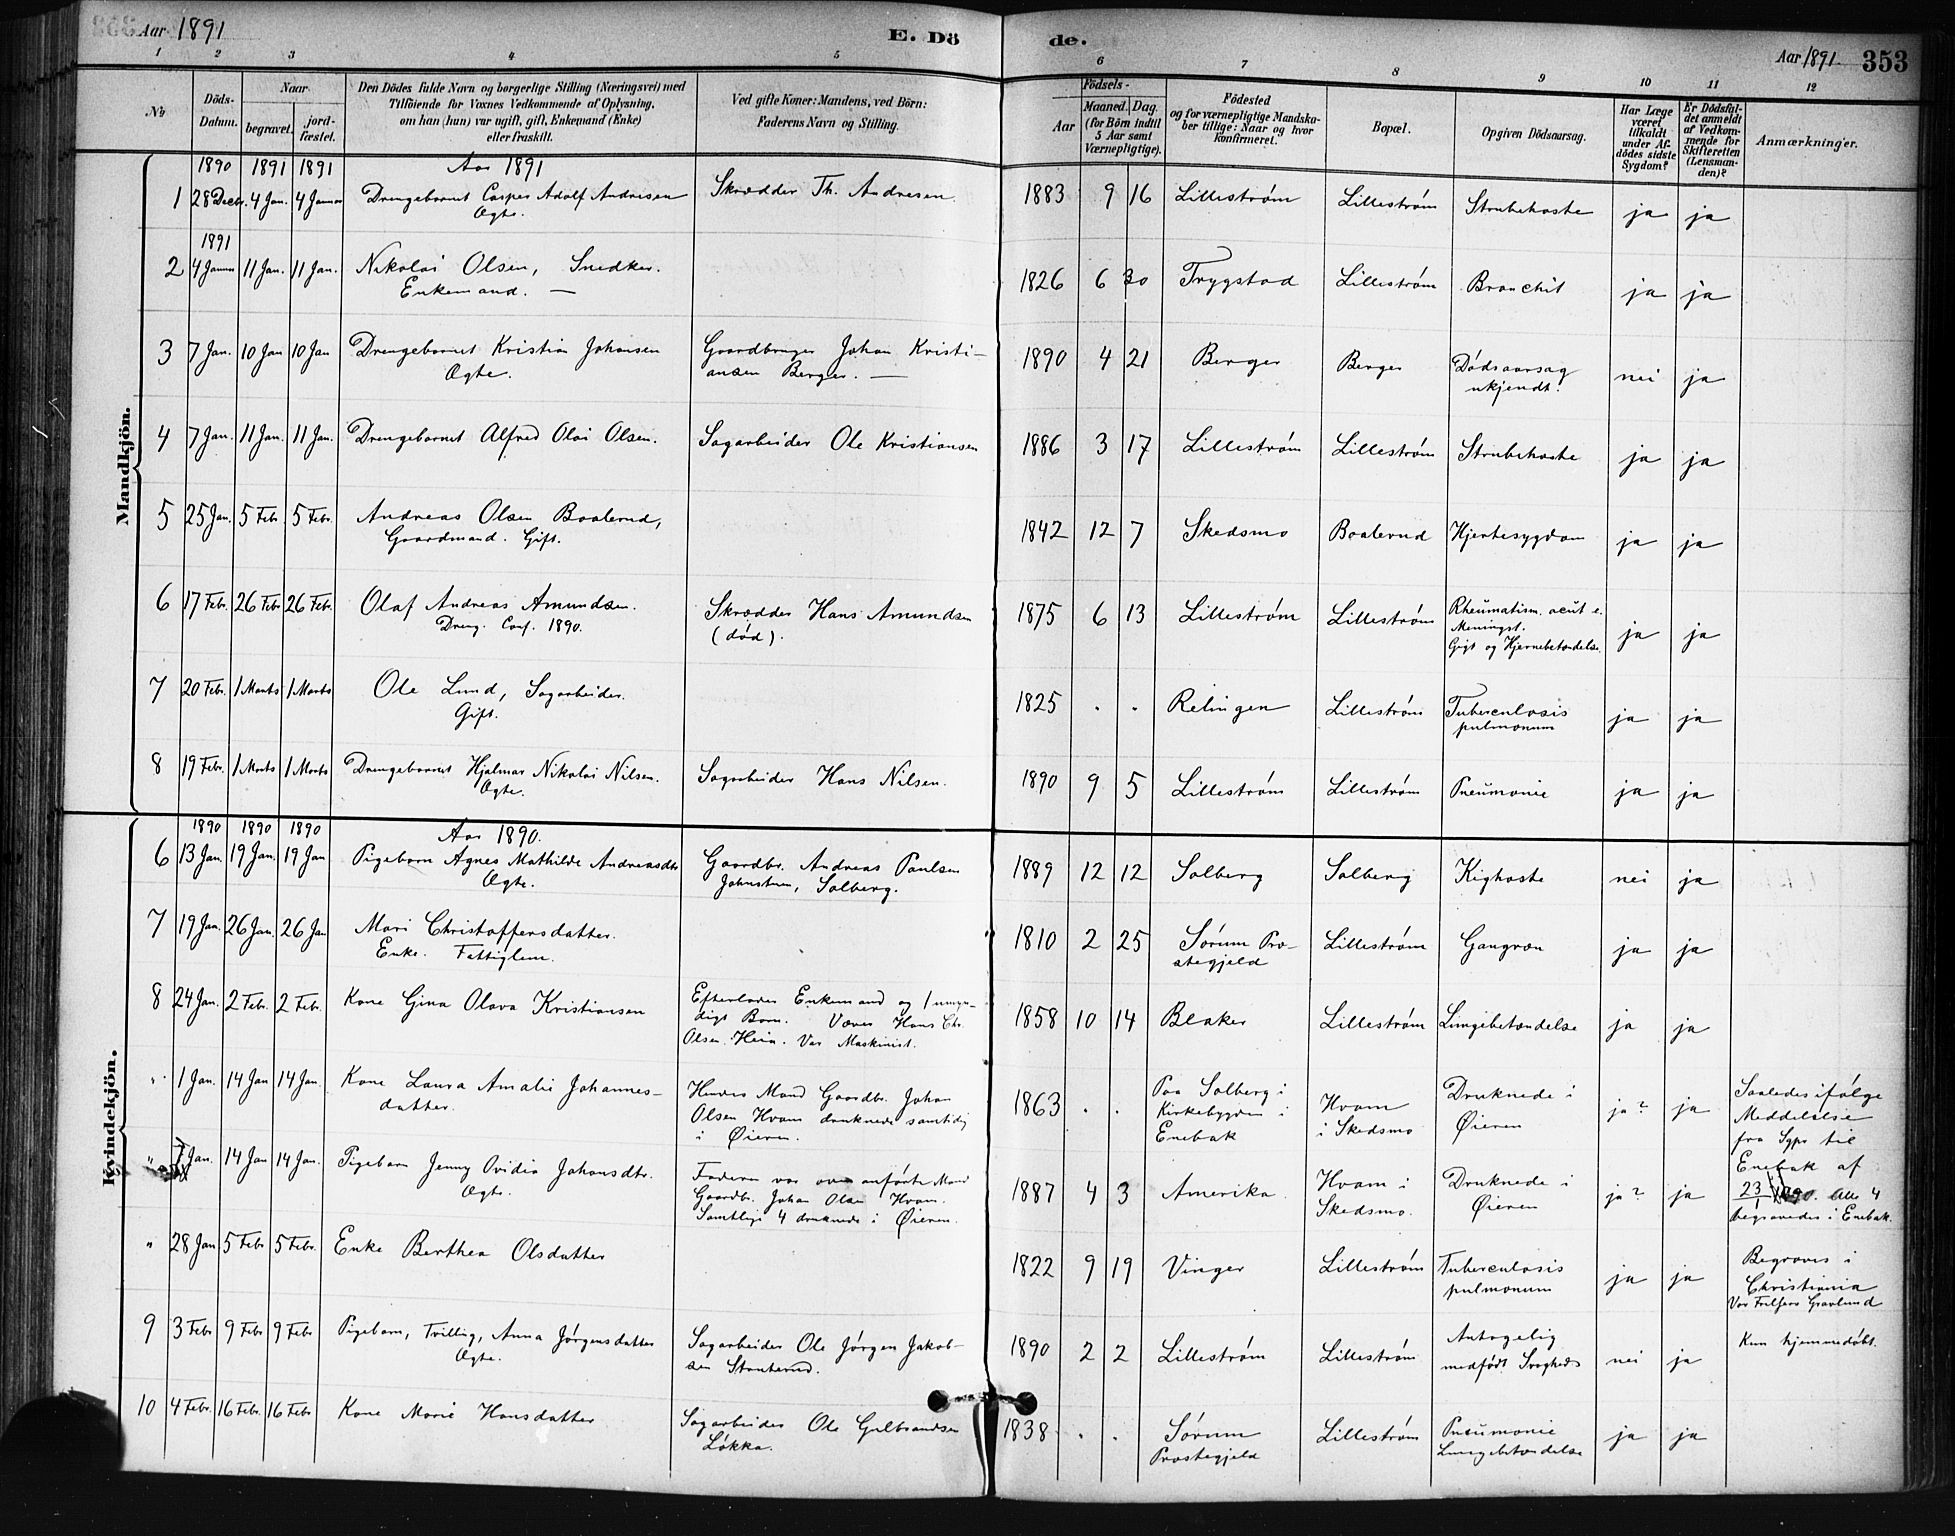 Aar 1891
E. Dö
de.
Aar 1891
353
1 2 3 4 5 6 7 8 9 10 11 12
No
Döds-Datum.
Naar
begravet.
jord-fæstet.
Den Dödes fulde Navn og borgerlige Stilling (Næringsvei) med
Tilföiende for Voxnes Vedkommende af Oplysning,
om han (hun) var ugift, gift, Enkemand (Enke)
eller fraskilt.
Ved gifte Koner: Mandens, ved Börn:
Faderens Navn og Stilling.
Födsels-
Aar
Maaned. Dag.
(for Börn indtil
5 Aar samt
Værnepligtige).
Födested
og for værnepligtige Mandska-
ber tillige: Naar og hvor
konfirmeret.
Bopæl.
Opgiven Dödsaarsag.
Har Læge
været
tilkaldt
under Af-
dödes sidste
Sygdom?
Er Dödsfal-
det anmeldt
af Vedkom-
mende for
Skifteretten
(Lensman-
den)?
Anmærkninger.
Mandkjön.
1890 1891 1891 Aar 1891
1 28 Decbr. 4 Jan. 4 Januar Drengebarnet Casper Adolf Andresen Skrædder Th. Andresen. 1883 9 16 Lillestrøm Lillestrøm Strubehoste ja ja
Ægte.
1891
2 4 Januar 11 Jan. 11 Jan. Nikolai Olsen, Snedker. 1826 6 30 Trygstad Lillestrøm Bronchit ja ja
Enkemand. —
3 7 Jan. 10 Jan 10 Jan Drengebarnet Kristian Johansen Gaardbruger Johan Kristi- 1890 4 21 Berger Berger Dödsaarsag nei ja
Ægte. ansen Berger. — ukjendt.
4 7 Jan. 11 Jan. 11 Jan. Drengebarnet Alfred Olai Olsen. Sagarbeider Ole Kristiansen 1886 3 17 Lillestrøm Lillestrøm Strubehoste ja ja
5 25 Jan. 5 Febr. 5 Febr. Andreas Olsen Boalerud, 1842 12 7 Skedsmo Boalerud Hjertesygdom ja ja
Gaardmand. Gift.
6 17 Febr. 26 Febr 26 Febr. Olaf Andreas Amundsen. Skrædder Hans Amundsen 1875 6 13 Lillestrøm Lillestrøm Rheumatism. acut e.
Dreng. Conf. 1890. (død). Meningst.
Gigt og Hjernebetændelse. ja ja
7 20 Febr. 1 Marts 1 Marts Ole Lund, Sagarbeider. 1825 . . Relingen Lillestrøm Tuberculosis ja ja
Gift. pulmonum
8 19 Febr. 1 Marts 1 Marts Drengebarnet Hjalmar Nikolai Nilsen. Sagarbeider Hans Nilsen. 1890 9 5 Lillestrøm Lillestrøm Pneumonie ja ja
Ægte.
Kvindekjön.
1890 1890 1890 Aar 1890.
6 13 Jan. 19 Jan. 19 Jan Pigebarn Agnes Mathilde Andreasdtr Gaardbr. Andreas Paulsen 1889 12 12 Solberg Solberg Kighoste nei ja
Ægte. Solberg.
7 19 Jan. 26 Jan. 26 Jan Mari Christoffersdatter. 1810 2 25 Sørum Præ- Lillestrøm Gangræn ja ja
Enke. Fattiglem. stegjeld
8 24 Jan. 2 Febr. 2 Febr. Kone Gina Olava Kristiansen Efterlader Enkemand og 1 umyn- 1858 10 14 Blaker Lillestrøm Lungebetændelse ja ja
digt Barn. Hans Chr.
Olsen Heia. Var Maskinist.
" 1 Jan. 14 Jan 14 Jan. Kone Laura Amalie Johannes- Hendes Mand Gaardbr. Johan 1863 . . Paa Solberg i Hvam Druknede i ja? ja Saaledes ifølge
datter. Olsen Hvam druknede samtidig Kirkebygden i i Skedsmo Øieren Meddelelse
i Øieren. Enebak fra Sgpr til
" 7 Jan. 14 Jan 14 Jan. Pigebarn Jenny Ovidia Johansdtr. Faderen var ovenanførte Mand 1887 4 3 Amerika. Hvam i Druknede i ja? ja Enebak af
Ægte. Gaardbr. Johan Olsen Hvam. Skedsmo. Øieren 23 1890. Alle 4
Samtlige 4 druknede i Øieren. begravedes i Enebak.
" 28 Jan 5 Febr 5 Febr. Enke Berthea Olsdatter 1822 9 19 Vinger Lillestrøm Tuberculosis ja ja Begraves i
pulmonum Christiania
Vor Frelsers Gravlund
9 3 Febr 9 Febr 9 Febr Pigebarn, Tvilling, Anna Jørgensdatter Sagarbeider Ole Jørgen Jakob- 1890 2 2 Lillestrøm Lillestrøm Antagelig nei ja Kun hjemmedøbt.
Ægte. sen medfødt Svaghed
10 4 Febr. 16 Febr. 16 Febr Kone Marie Hansdatter Sagarbeider Ole Gulbrandsen 1838 . . Sørum Lillestrøm Pneumonie ja ja
Løkka. Præstegjeld Lungebetændelse